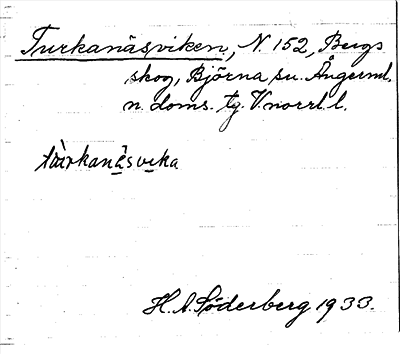 Turkanäsviken, N. 152, Bergs
skog, Björna sn. Ångerml.
n. doms. tg. V.norrl. l.
tùrkanä̀svika
H. A. Söderberg 1933.